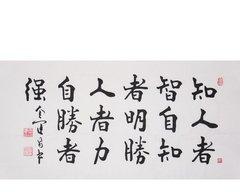 知人者
智自知
者明勝
人者力
自勝者
强